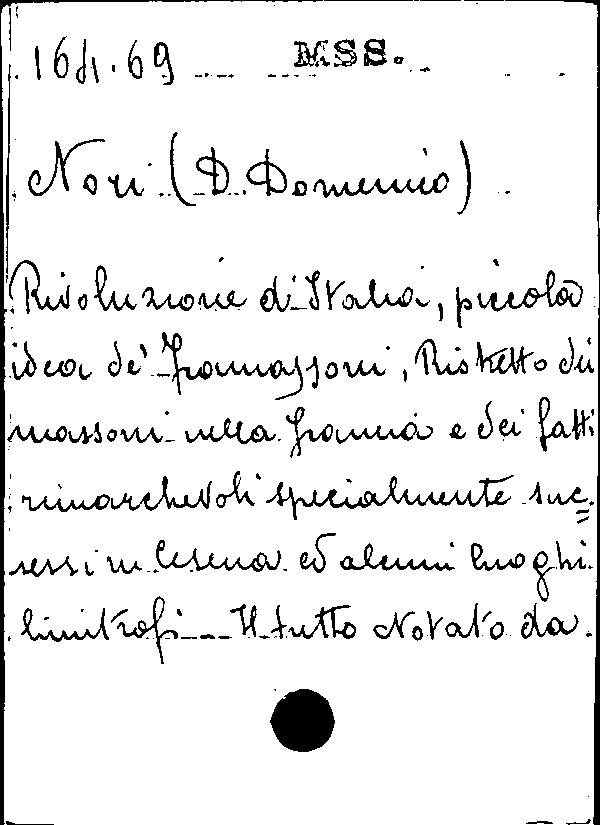 164.69 MSS.
Nori (D. Domenico)
Rivoluzione d'Italia, piccola
idea de' Framassoni, Ristretto dei
massoni nella Francia e dei fatti
rimarchevoli specialmente suc=
sessi in Cesena ed alcuni luoghi
limitrofi Il tutto Notato da